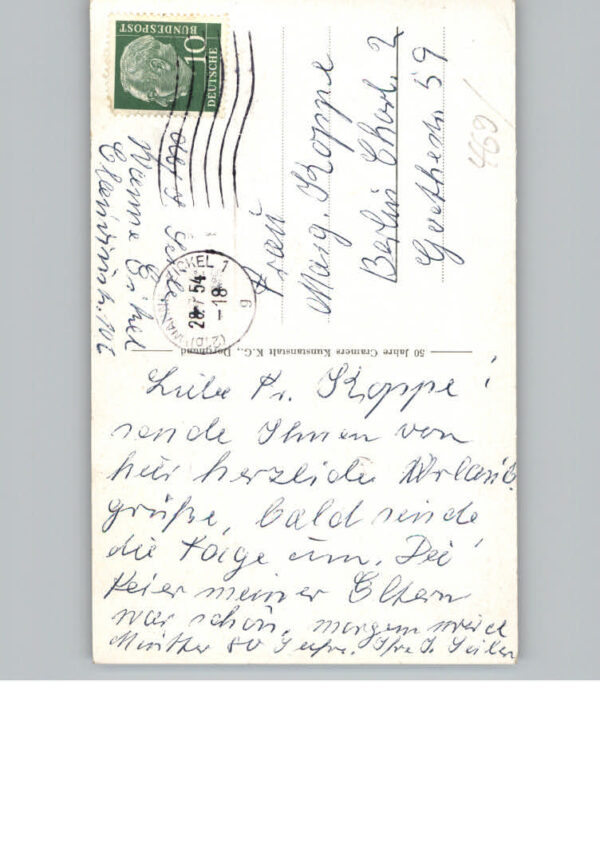 DEUTSCHE
BUNDESPOST
10
WANNE-EICKEL 1
28.7.54
-18
g
Wanne Eickel
Frau
Marg. Koppe
Berlin Charl. 2
Goethestr. 59
469/
50 Jahre Cramers Kunstanstalt K.G., Dortmund
Liebe Fr. Koppe!
sende Ihnen von
hier herzliche Urlaubs
grüße, bald sind
die Tage um. Die
Feier meiner Eltern
war schön, morgen wird
Mutter 80 Jahre. Ihre J. Seiler